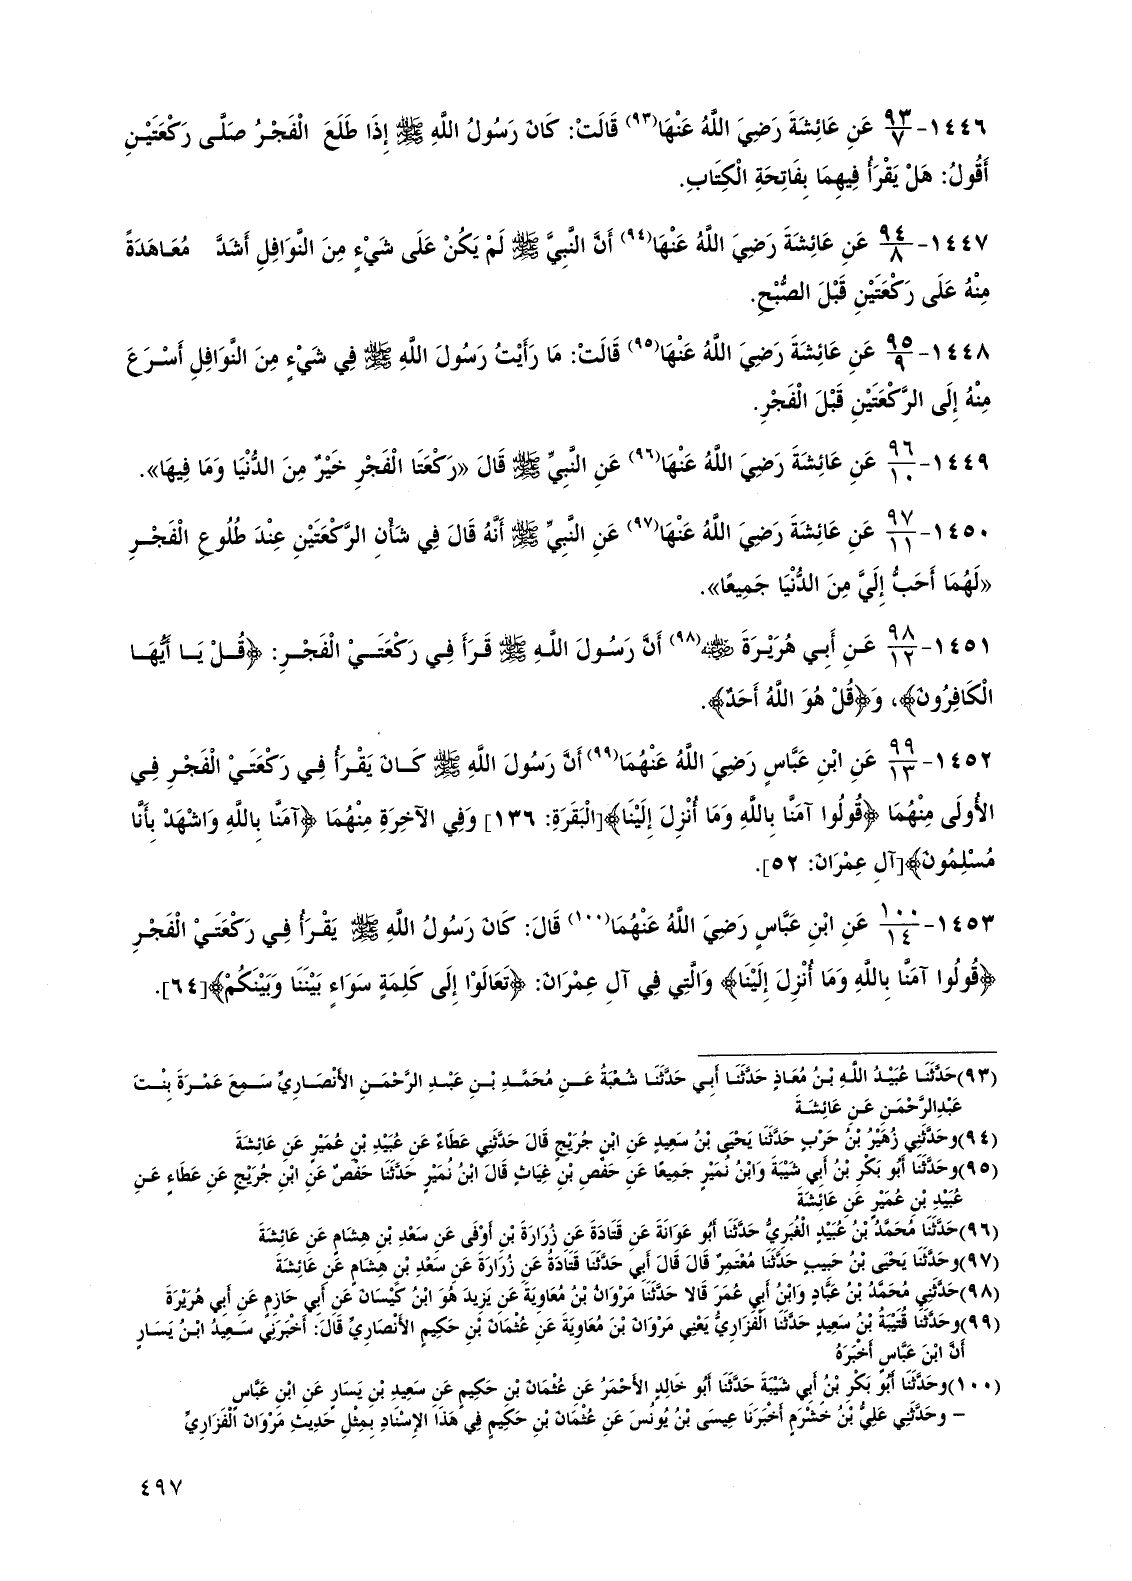 ١٤٤٦-٩٣/٧ عَنِ عَائِشَةَ رَضِيَ اللَّهُ عَنْهَا(٩٣) قَالَتْ: كَانَ رَسُولُ اللَّهِ ﷺ إِذَا طَلَعَ الْفَجْرُ صَلَّى رَكْعَتَيْنِ
أَقُولُ: هَلْ يَقْرَأُ فِيهِمَا بِفَاتِحَةِ الْكِتَابِ.
١٤٤٧-٩٤/٨ عَنِ عَائِشَةَ رَضِيَ اللَّهُ عَنْهَا(٩٤) أَنَّ النَّبِيَّ ﷺ لَمْ يَكُنْ عَلَى شَيْءٍ مِنَ النَّوَافِلِ أَشَدَّ مُعَاهَدَةً
مِنْهُ عَلَى رَكْعَتَيْنِ قَبْلَ الصُّبْحِ.
١٤٤٨-٩٥/٩ عَنِ عَائِشَةَ رَضِيَ اللَّهُ عَنْهَا(٩٥) قَالَتْ: مَا رَأَيْتُ رَسُولَ اللَّهِ ﷺ فِي شَيْءٍ مِنَ النَّوَافِلِ أَسْرَعَ
مِنْهُ إِلَى الرَّكْعَتَيْنِ قَبْلَ الْفَجْرِ.
١٤٤٩-٩٦/١٠ عَنِ عَائِشَةَ رَضِيَ اللَّهُ عَنْهَا(٩٦) عَنِ النَّبِيِّ ﷺ قَالَ «رَكْعَتَا الْفَجْرِ خَيْرٌ مِنَ الدُّنْيَا وَمَا فِيهَا».
١٤٥٠-٩٧/١١ عَنِ عَائِشَةَ رَضِيَ اللَّهُ عَنْهَا(٩٧) عَنِ النَّبِيِّ ﷺ أَنَّهُ قَالَ فِي شَأْنِ الرَّكْعَتَيْنِ عِنْدَ طُلُوعِ الْفَجْرِ
«لَهُمَا أَحَبُّ إِلَيَّ مِنَ الدُّنْيَا جَمِيعًا».
١٤٥١-٩٨/١٢ عَنِ أَبِي هُرَيْرَةَ ﵁(٩٨) أَنَّ رَسُولَ اللَّهِ ﷺ قَرَأَ فِي رَكْعَتَيْ الْفَجْرِ: ﴿قُلْ يَا أَيُّهَا
الْكَافِرُونَ﴾، وَ﴿قُلْ هُوَ اللَّهُ أَحَدٌ﴾.
١٤٥٢-٩٩/١٣ عَنِ ابْنِ عَبَّاسٍ رَضِيَ اللَّهُ عَنْهُمَا(٩٩) أَنَّ رَسُولَ اللَّهِ ﷺ كَانَ يَقْرَأُ فِي رَكْعَتَيْ الْفَجْرِ فِي
الأُولَى مِنْهُمَا ﴿قُولُوا آمَنَّا بِاللَّهِ وَمَا أُنْزِلَ إِلَيْنَا﴾[الْبَقَرَةِ: ١٣٦] وَفِي الآخِرَةِ مِنْهُمَا ﴿آمَنَّا بِاللَّهِ وَاشْهَدْ بِأَنَّا
مُسْلِمُونَ﴾[آلِ عِمْرَانَ: ٥٢].
١٤٥٣-١٠٠/١٤ عَنِ ابْنِ عَبَّاسٍ رَضِيَ اللَّهُ عَنْهُمَا(١٠٠) قَالَ: كَانَ رَسُولُ اللَّهِ ﷺ يَقْرَأُ فِي رَكْعَتَيْ الْفَجْرِ
﴿قُولُوا آمَنَّا بِاللَّهِ وَمَا أُنْزِلَ إِلَيْنَا﴾ وَالَّتِي فِي آلِ عِمْرَانَ: ﴿تَعَالَوْا إِلَى كَلِمَةٍ سَوَاءٍ بَيْنَنَا وَبَيْنَكُمْ﴾[٦٤].
(٩٣)حَدَّثَنَا عُبَيْدُ اللَّهِ بْنُ مُعَاذٍ حَدَّثَنَا أَبِي حَدَّثَنَا شُعْبَةُ عَنِ مُحَمَّدِ بْنِ عَبْدِ الرَّحْمَنِ الأَنْصَارِيِّ سَمِعَ عَمْرَةَ بِنْتَ
عَبْدِالرَّحْمَنِ عَنِ عَائِشَةَ
(٩٤)وحَدَّثَنِي زُهَيْرُ بْنُ حَرْبٍ حَدَّثَنَا يَحْيَى بْنُ سَعِيدٍ عَنِ ابْنِ جُرَيْجٍ قَالَ حَدَّثَنِي عَطَاءٌ عَنِ عُبَيْدِ بْنِ عُمَيْرٍ عَنِ عَائِشَةَ
(٩٥)وحَدَّثَنَا أَبُو بَكْرِ بْنُ أَبِي شَيْبَةَ وَابْنُ نُمَيْرٍ جَمِيعًا عَنِ حَفْصِ بْنِ غِيَاثٍ قَالَ ابْنُ نُمَيْرٍ حَدَّثَنَا حَفْصٌ عَنِ ابْنِ جُرَيْجٍ عَنِ عَطَاءٍ عَنِ
عُبَيْدِ بْنِ عُمَيْرٍ عَنِ عَائِشَةَ
(٩٦)حَدَّثَنَا مُحَمَّدُ بْنُ عُبَيْدٍ الْغُبَرِيُّ حَدَّثَنَا أَبُو عَوَانَةَ عَنِ قَتَادَةَ عَنِ زُرَارَةَ بْنِ أَوْفَى عَنِ سَعْدِ بْنِ هِشَامٍ عَنِ عَائِشَةَ
(٩٧)وحَدَّثَنَا يَحْيَى بْنُ حَبِيبٍ حَدَّثَنَا مُعْتَمِرٌ قَالَ قَالَ أَبِي حَدَّثَنَا قَتَادَةُ عَنِ زُرَارَةَ عَنِ سَعْدِ بْنِ هِشَامٍ عَنِ عَائِشَةَ
(٩٨)حَدَّثَنِي مُحَمَّدُ بْنُ عَبَّادٍ وَابْنُ أَبِي عُمَرَ قَالا حَدَّثَنَا مَرْوَانُ بْنُ مُعَاوِيَةَ عَنِ يَزِيدَ هُوَ ابْنُ كَيْسَانَ عَنِ أَبِي حَازِمٍ عَنِ أَبِي هُرَيْرَةَ
(٩٩)وحَدَّثَنَا قُتَيْبَةُ بْنُ سَعِيدٍ حَدَّثَنَا الْفَزَارِيُّ يَعْنِي مَرْوَانَ بْنَ مُعَاوِيَةَ عَنِ عُثْمَانَ بْنِ حَكِيمٍ الأَنْصَارِيِّ قَالَ: أَخْبَرَنِي سَعِيدُ ابْنُ يَسَارٍ
أَنَّ ابْنَ عَبَّاسٍ أَخْبَرَهُ
(١٠٠)وحَدَّثَنَا أَبُو بَكْرِ بْنُ أَبِي شَيْبَةَ حَدَّثَنَا أَبُو خَالِدٍ الأَحْمَرُ عَنِ عُثْمَانَ بْنِ حَكِيمٍ عَنِ سَعِيدِ بْنِ يَسَارٍ عَنِ ابْنِ عَبَّاسٍ
– وحَدَّثَنِي عَلِيُّ بْنُ خَشْرَمٍ أَخْبَرَنَا عِيسَى بْنُ يُونُسَ عَنِ عُثْمَانَ بْنِ حَكِيمٍ فِي هَذَا الإِسْنَادِ بِمِثْلِ حَدِيثِ مَرْوَانَ الْفَزَارِيِّ
٤٩٧